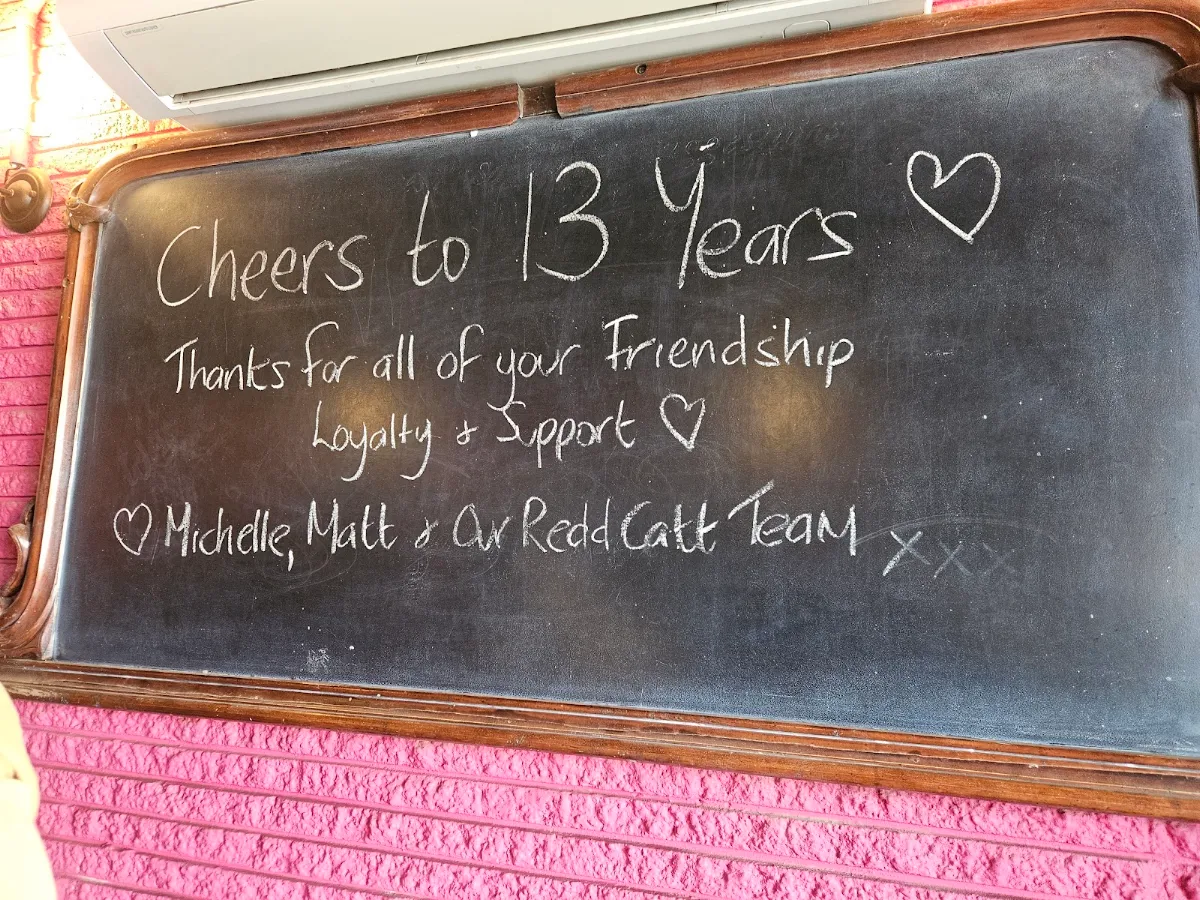 Cheers to 13 Years ♡
Thanks for all of your Friendship
Loyalty & Support ♡
♡ Michelle, Matt & Our Redd Catt Team xxx